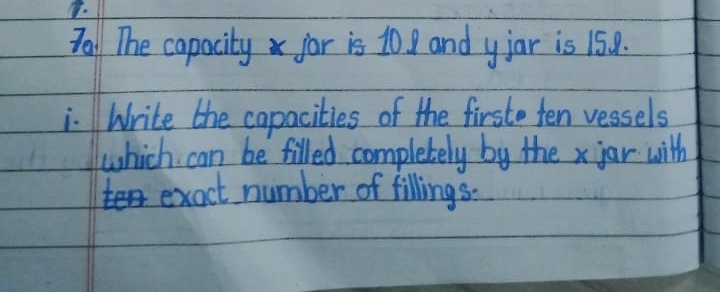 7.
7a. The capacity x jar is 10l and y jar is 15l.
i. Write the capacities of the first ten vessels
which can be filled completely by the x jar with
ten exact number of fillings.